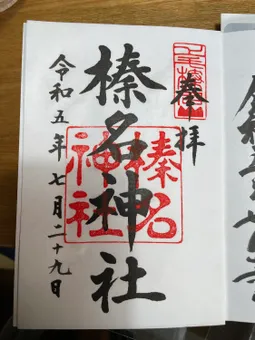 奉拝
榛名神社
榛名
神社
令和五年七月二十九日